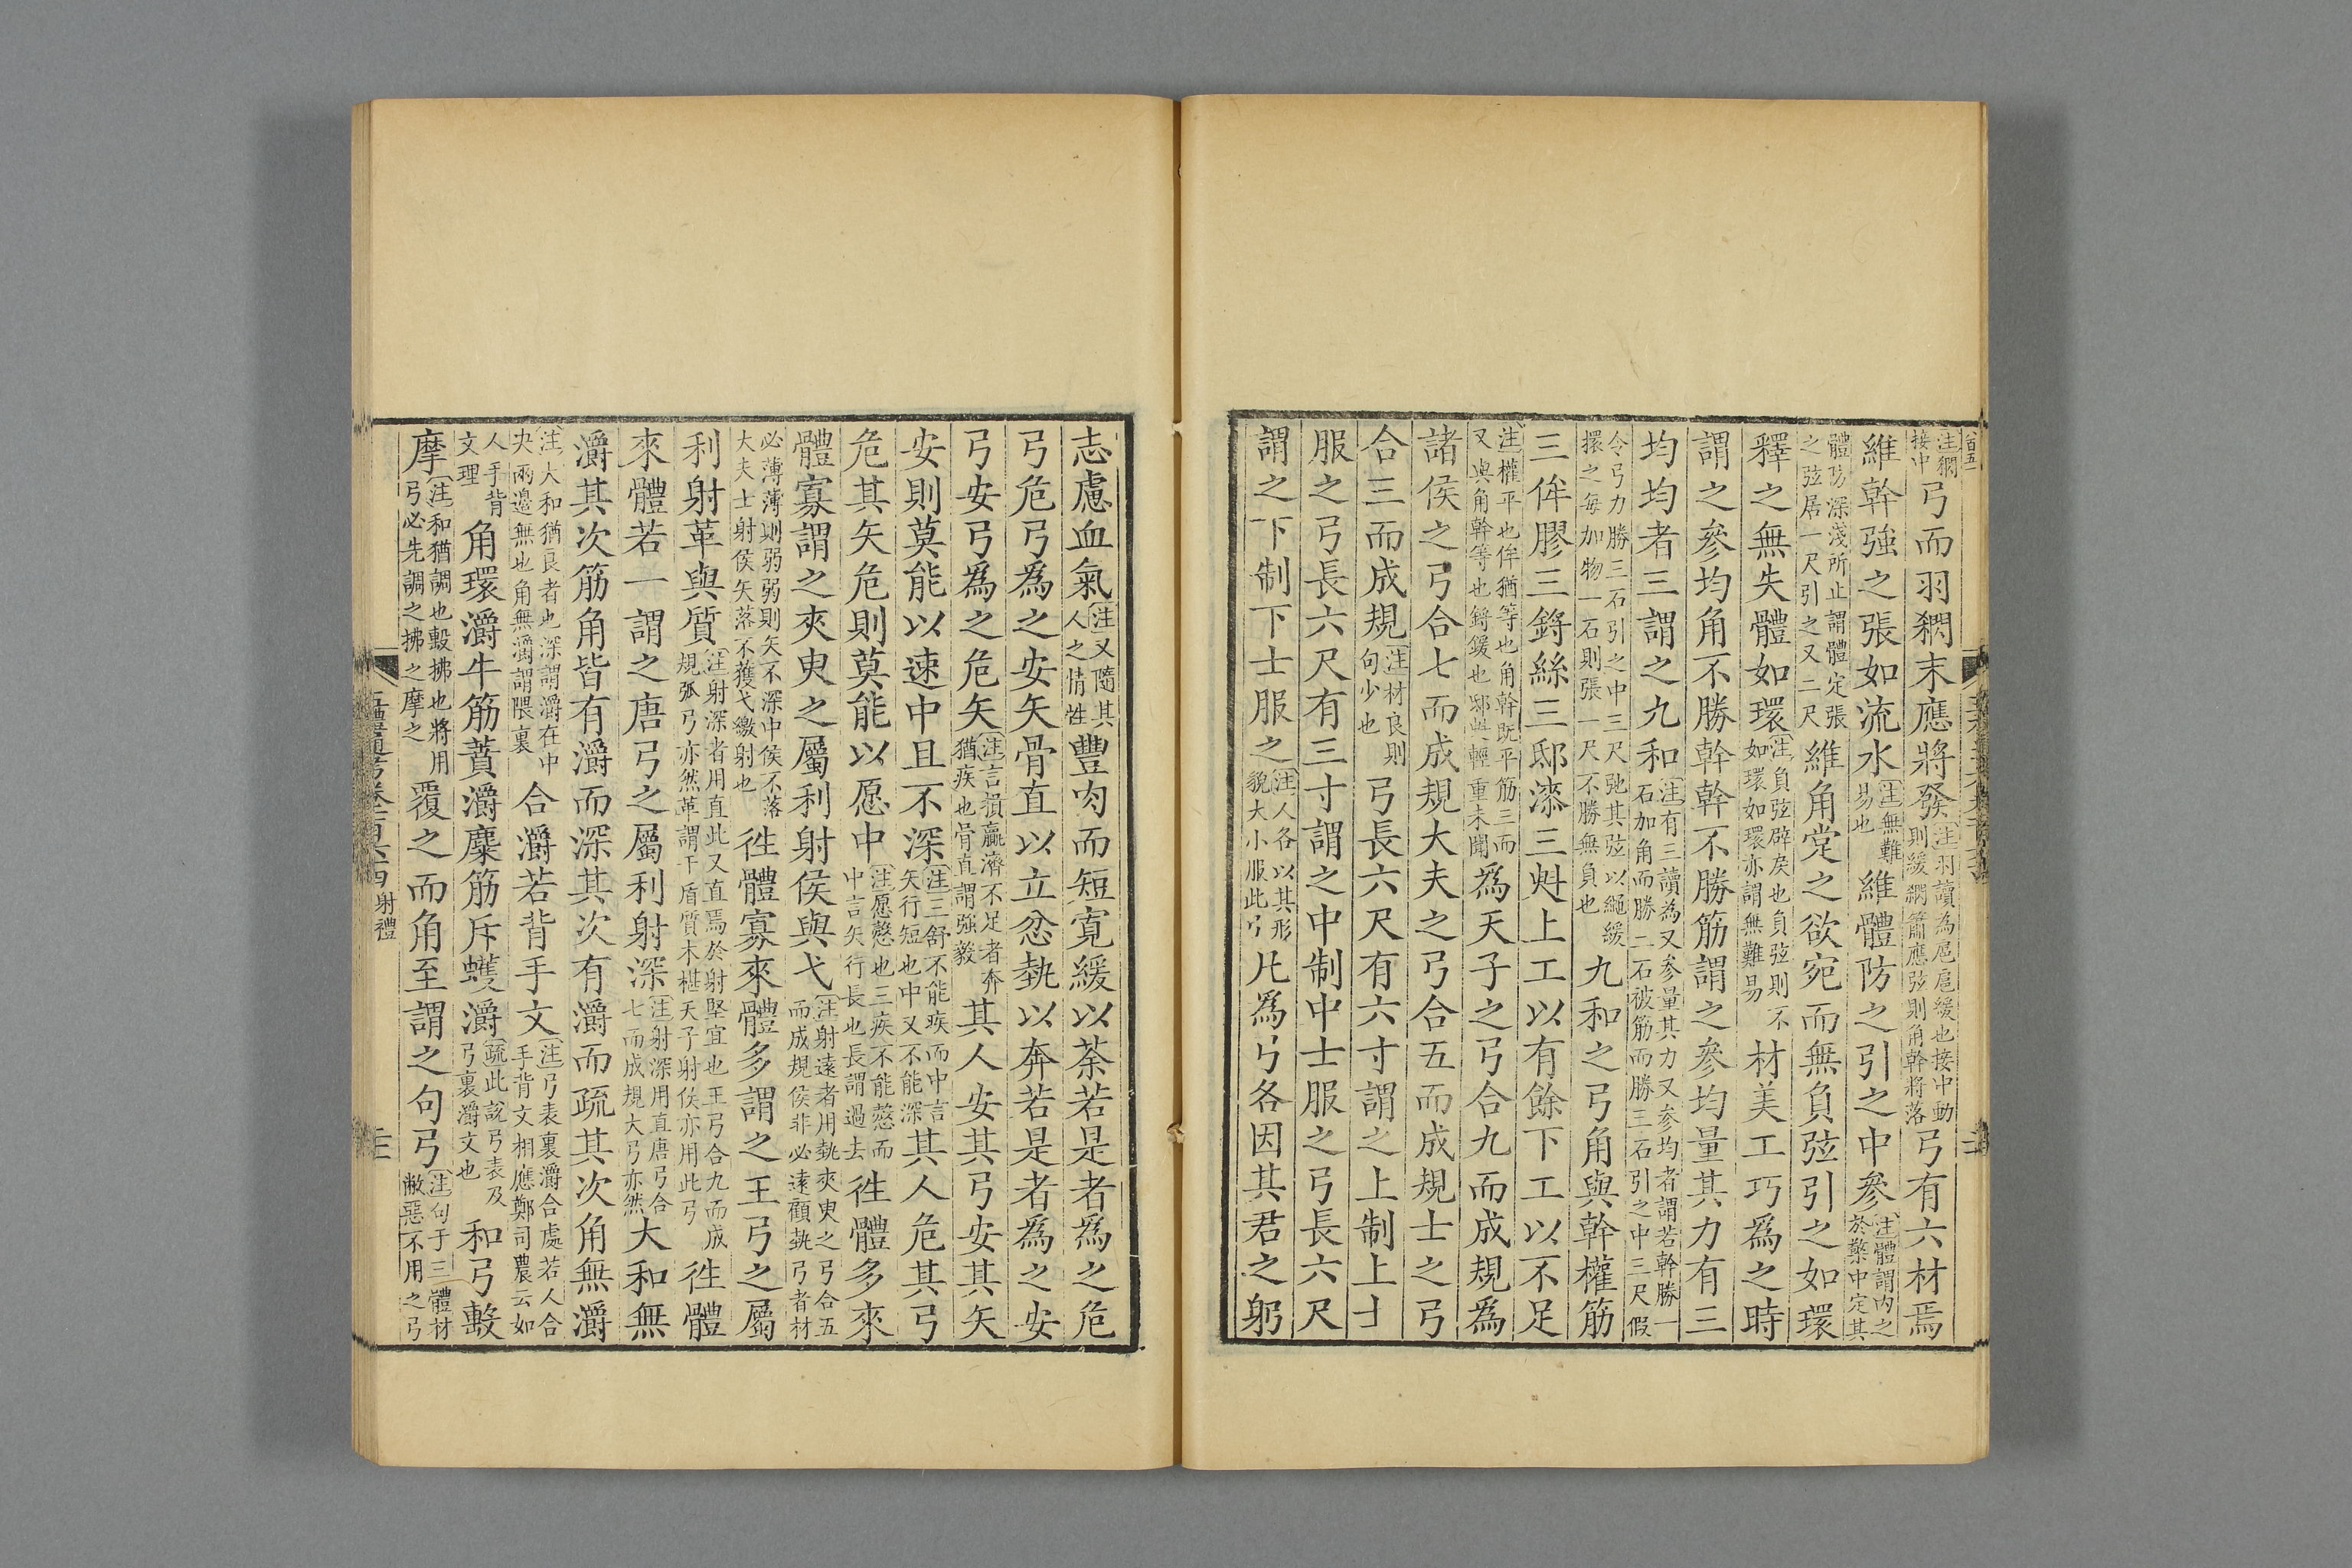 注閷接中弓而羽閷末應將發注羽讀為扈扈緩也接中動則緩閷簫應弦則角幹將落弓有六材焉
維幹強之張如流水注無難易也維體防之引之中參注體謂内之於檠中定其
體防深淺所止謂體定張之弦居一尺引之又二尺維角牚之欲宛而無負弦引之如環
釋之無失體如環注負弦辟戾也負弦則不如環如環亦謂無難易材美工巧爲之時
謂之參均角不勝幹幹不勝筋謂之參均量其力有三
均均者三謂之九和注有三讀為又參量其力又參均者謂若幹勝一石加角而勝二石被筋而勝三石引之中三尺假
令弓力勝三石引之中三尺弛其弦以繩緩擐之每加物一石則張一尺不勝無負也九和之弓角與幹權筋
三侔膠三鋝絲三邸漆三㪺上工以有餘下工以不足
注權平也侔猶等也角幹既平筋三而又與角幹等也鋝鍰也邸㪺輕重未聞爲天子之弓合九而成規爲
諸侯之弓合七而成規大夫之弓合五而成規士之弓
合三而成規注材良則句少也弓長六尺有六寸謂之上制上士
服之弓長六尺有三寸謂之中制中士服之弓長六尺
謂之下制下士服之注人各以其形貌大小服此弓凡爲弓各因其君之躬
志慮血氣注又隨其人之情性豐肉而短寬緩以荼若是者爲之危
弓危弓爲之安矢骨直以立忿埶以奔若是者爲之安
弓安弓爲之危矢注言損贏濟不足者奔猶疾也骨直謂強毅其人安其弓安其矢
安則莫能以速中且不深注三舒不能疾而中言矢行短也中又不能深其人危其弓
危其矢危則莫能以愿中注愿愨也三疾不能愨而中言矢行長也長謂過去往體多來
體寡謂之夾臾之屬利射侯與弋注射遠者用埶夾臾之弓合五而成規侯非必遠顧埶弓者材
必薄薄則弱弱則矢不深中侯不落大夫士射侯矢落不獲弋繳射也往體寡來體多謂之王弓之屬
利射革與質注射深者用直此又直焉於射堅宜也王弓合九而成規弧弓亦然革謂干盾質木椹天子射侯亦用此弓往體
來體若一謂之唐弓之屬利射深注射深用直唐弓合七而成規大弓亦然大和無
灂其次筋角皆有灂而深其次有灂而疏其次角無灂
注大和猶良者也深謂灂在中央兩邊無也角無灂謂隈裏合灂若背手文注弓表裏灂合處若人合手背文相應鄭司農云如
人手背文理角環灂牛筋蕡灂麋筋斥蠖灂疏此說弓表及弓裏灂文也和弓毄
摩注和猶調也毄拂也將用弓必先調之拂之摩之覆之而角至謂之句弓注句于三體材敝惡不用之弓
五禮通考卷一百六十四 射禮